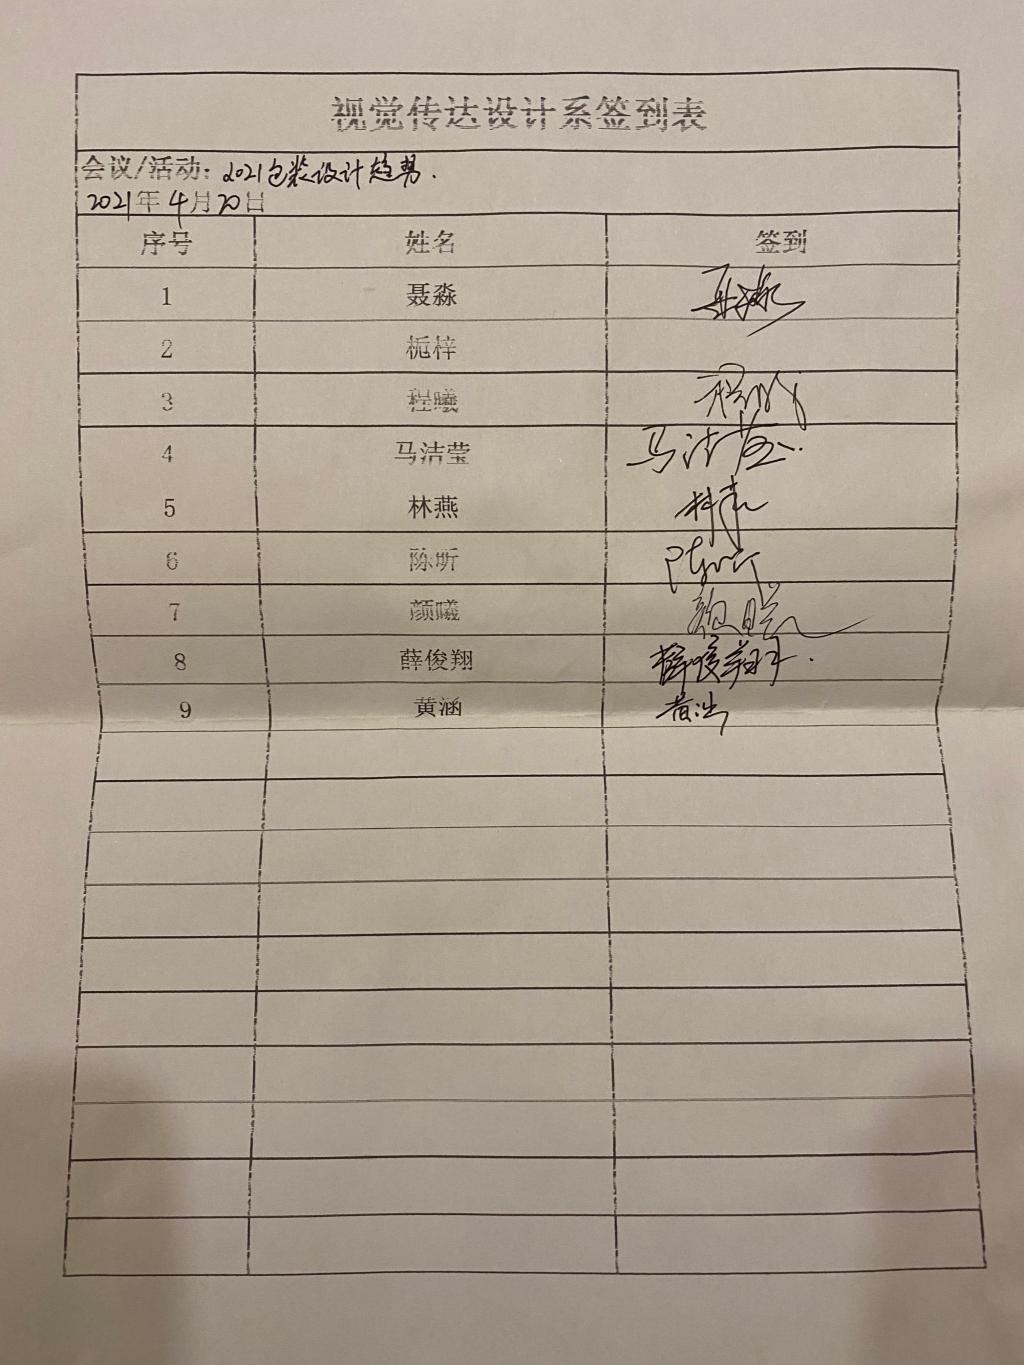 视觉传达设计系签到表
会议/活动：2021包装设计趋势.
2021年4月20日
序号 姓名 签到
1 聂淼 聂淼
2 栀梓
3 程曦 程曦
4 马洁莹 马洁莹
5 林燕 林燕
6 陈昕 陈昕
7 颜曦 颜曦
8 薛俊翔 薛俊翔.
9 黄涵 黄涵